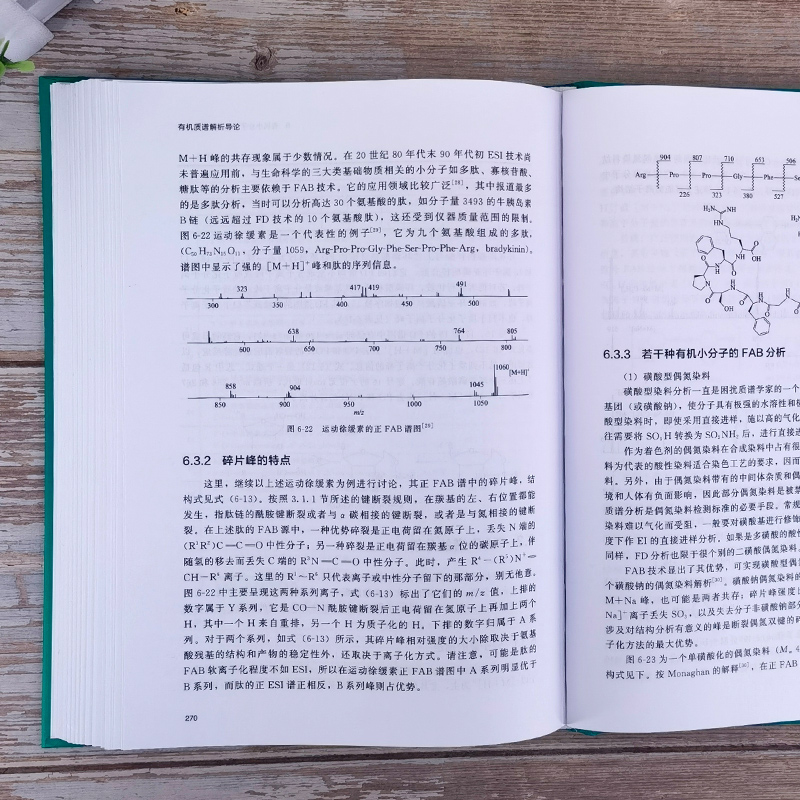 有机质谱解析导论
M+H 峰的共存现象属于少数情况。在 20 世纪 80 年代末 90 年代初 ESI 技术尚
未普遍应用前，与生命科学的三大类基础物质相关的小分子如多肽、寡核苷酸、
糖肽等的分析主要依赖于 FAB 技术。它的应用领域比较广泛[28]，其中报道最多
的是多肽分析，当时可以分析高达 30 个氨基酸的肽，如分子量 3493 的牛胰岛素
B 链（远远超过 FD 技术的 10 个氨基酸肽），这还受到仪器质量范围的限制。
图 6-22 运动徐缓素是一个代表性的例子[29]，它为九个氨基酸组成的多肽，
(C50H73N15O11，分子量 1059，Arg-Pro-Pro-Gly-Phe-Ser-Pro-Phe-Arg，bradykinin)。
谱图中显示了强的 [M+H]+ 峰和肽的序列信息。
323 417 419 491
300 350 400 450 500
638 764 805
600 650 700 750 800
1060 [M+H]+
858 904 1045
850 900 950 1000 1050
m/z
图 6-22 运动徐缓素的正 FAB 谱图[29]
6.3.2 碎片峰的特点
这里，继续以上述运动徐缓素为例进行讨论，其正 FAB 谱中的碎片峰，结
构式见式 (6-13)。按照 3.1.1 节所述的键断裂规则。在羰基的左、右位置都能
发生，指肽链的酰胺键断裂或者与 α 碳相接的键断裂，或者是与氮相接的键断
裂。在上述肽的 FAB 源中，一种优势碎裂是正电荷留在氮原子上，丢失 N 端的
(R1R2)C=C=O 中性分子；另一种碎裂是正电荷留在羰基 α 位的碳原子上，伴
随氢的移去而丢失 C 端的 R3N=C=O 中性分子。此时，产生 R4-(R5)N+=
CH-R6 离子。这里的 R1~R6 只代表离子或中性分子留下的那部分，别无他意。
图 6-22 中主要呈现这两种系列离子，式 (6-13) 标出了它们的 m/z 值，上排的
数字属于 Y 系列，它是 CO—N 酰胺键断裂后正电荷留在氮原子上再加上两个
H，其中一个 H 来自重排，另一个 H 为质子化的 H。下排的数字归属于 A 系
列。对于两个系列，如式 (6-13) 所示，其碎片峰相对强度的大小除取决于氨基
酸残基的结构和产物的稳定性外，还取决于离子化方式。请注意，可能是肽的
FAB 软离子化程度不如 ESI，所以在运动徐缓素正 FAB 谱图中 A 系列明显优于
B 系列，而肽的正 ESI 谱正相反，B 系列峰则占优势。
270
904 807 710 653 506
Arg Pro Pro Gly Phe
226 323 380 527
6.3.3 若干种有机小分子的 FAB 分析
（1）磺酸型偶氮染料
磺酸型染料分析一直是困扰质谱学家的一个
基团（或磺酸钠），使分子具有极强的水溶性和
酸型染料时，即使采用直接进样，施以高的气化
往需要将 SO3H 转换为 SO2NH2 后，进行直接进
作为着色剂的偶氮染料在合成染料中占有很
料为代表的酸性染料适合染色工艺的要求，因而
料。另外，由于偶氮染料带有的中间体杂质和偶
境和人体有负面影响，因此部分偶氮染料是被禁
质谱分析是偶氮染料检测标准的必要手段。常规
染料难以气化而受阻，一般要对磺酸基进行修饰
度下作 EI 的直接进样分析。如果是多磺酸的酸性
同样，FD 分析也限于很个别的二磺酸偶氮染料。
FAB 技术显出了其优势，可实现磺酸型偶
个磺酸钠的偶氮染料解析[30]。磺酸钠偶氮染料的
M+Na 峰，也可能是两者共存；碎片峰强度比
Na]+ 离子丢失 SO3，以及失去分子非磺酸钠部分
涉及对结构分析有意义的峰是断裂偶氮双键的碎
子化方法的最大优势。
图 6-23 为一个单磺酸化的偶氮染料 (Mr 4
构式见下。按 Monaghan 的解释[30]，在正 FAB